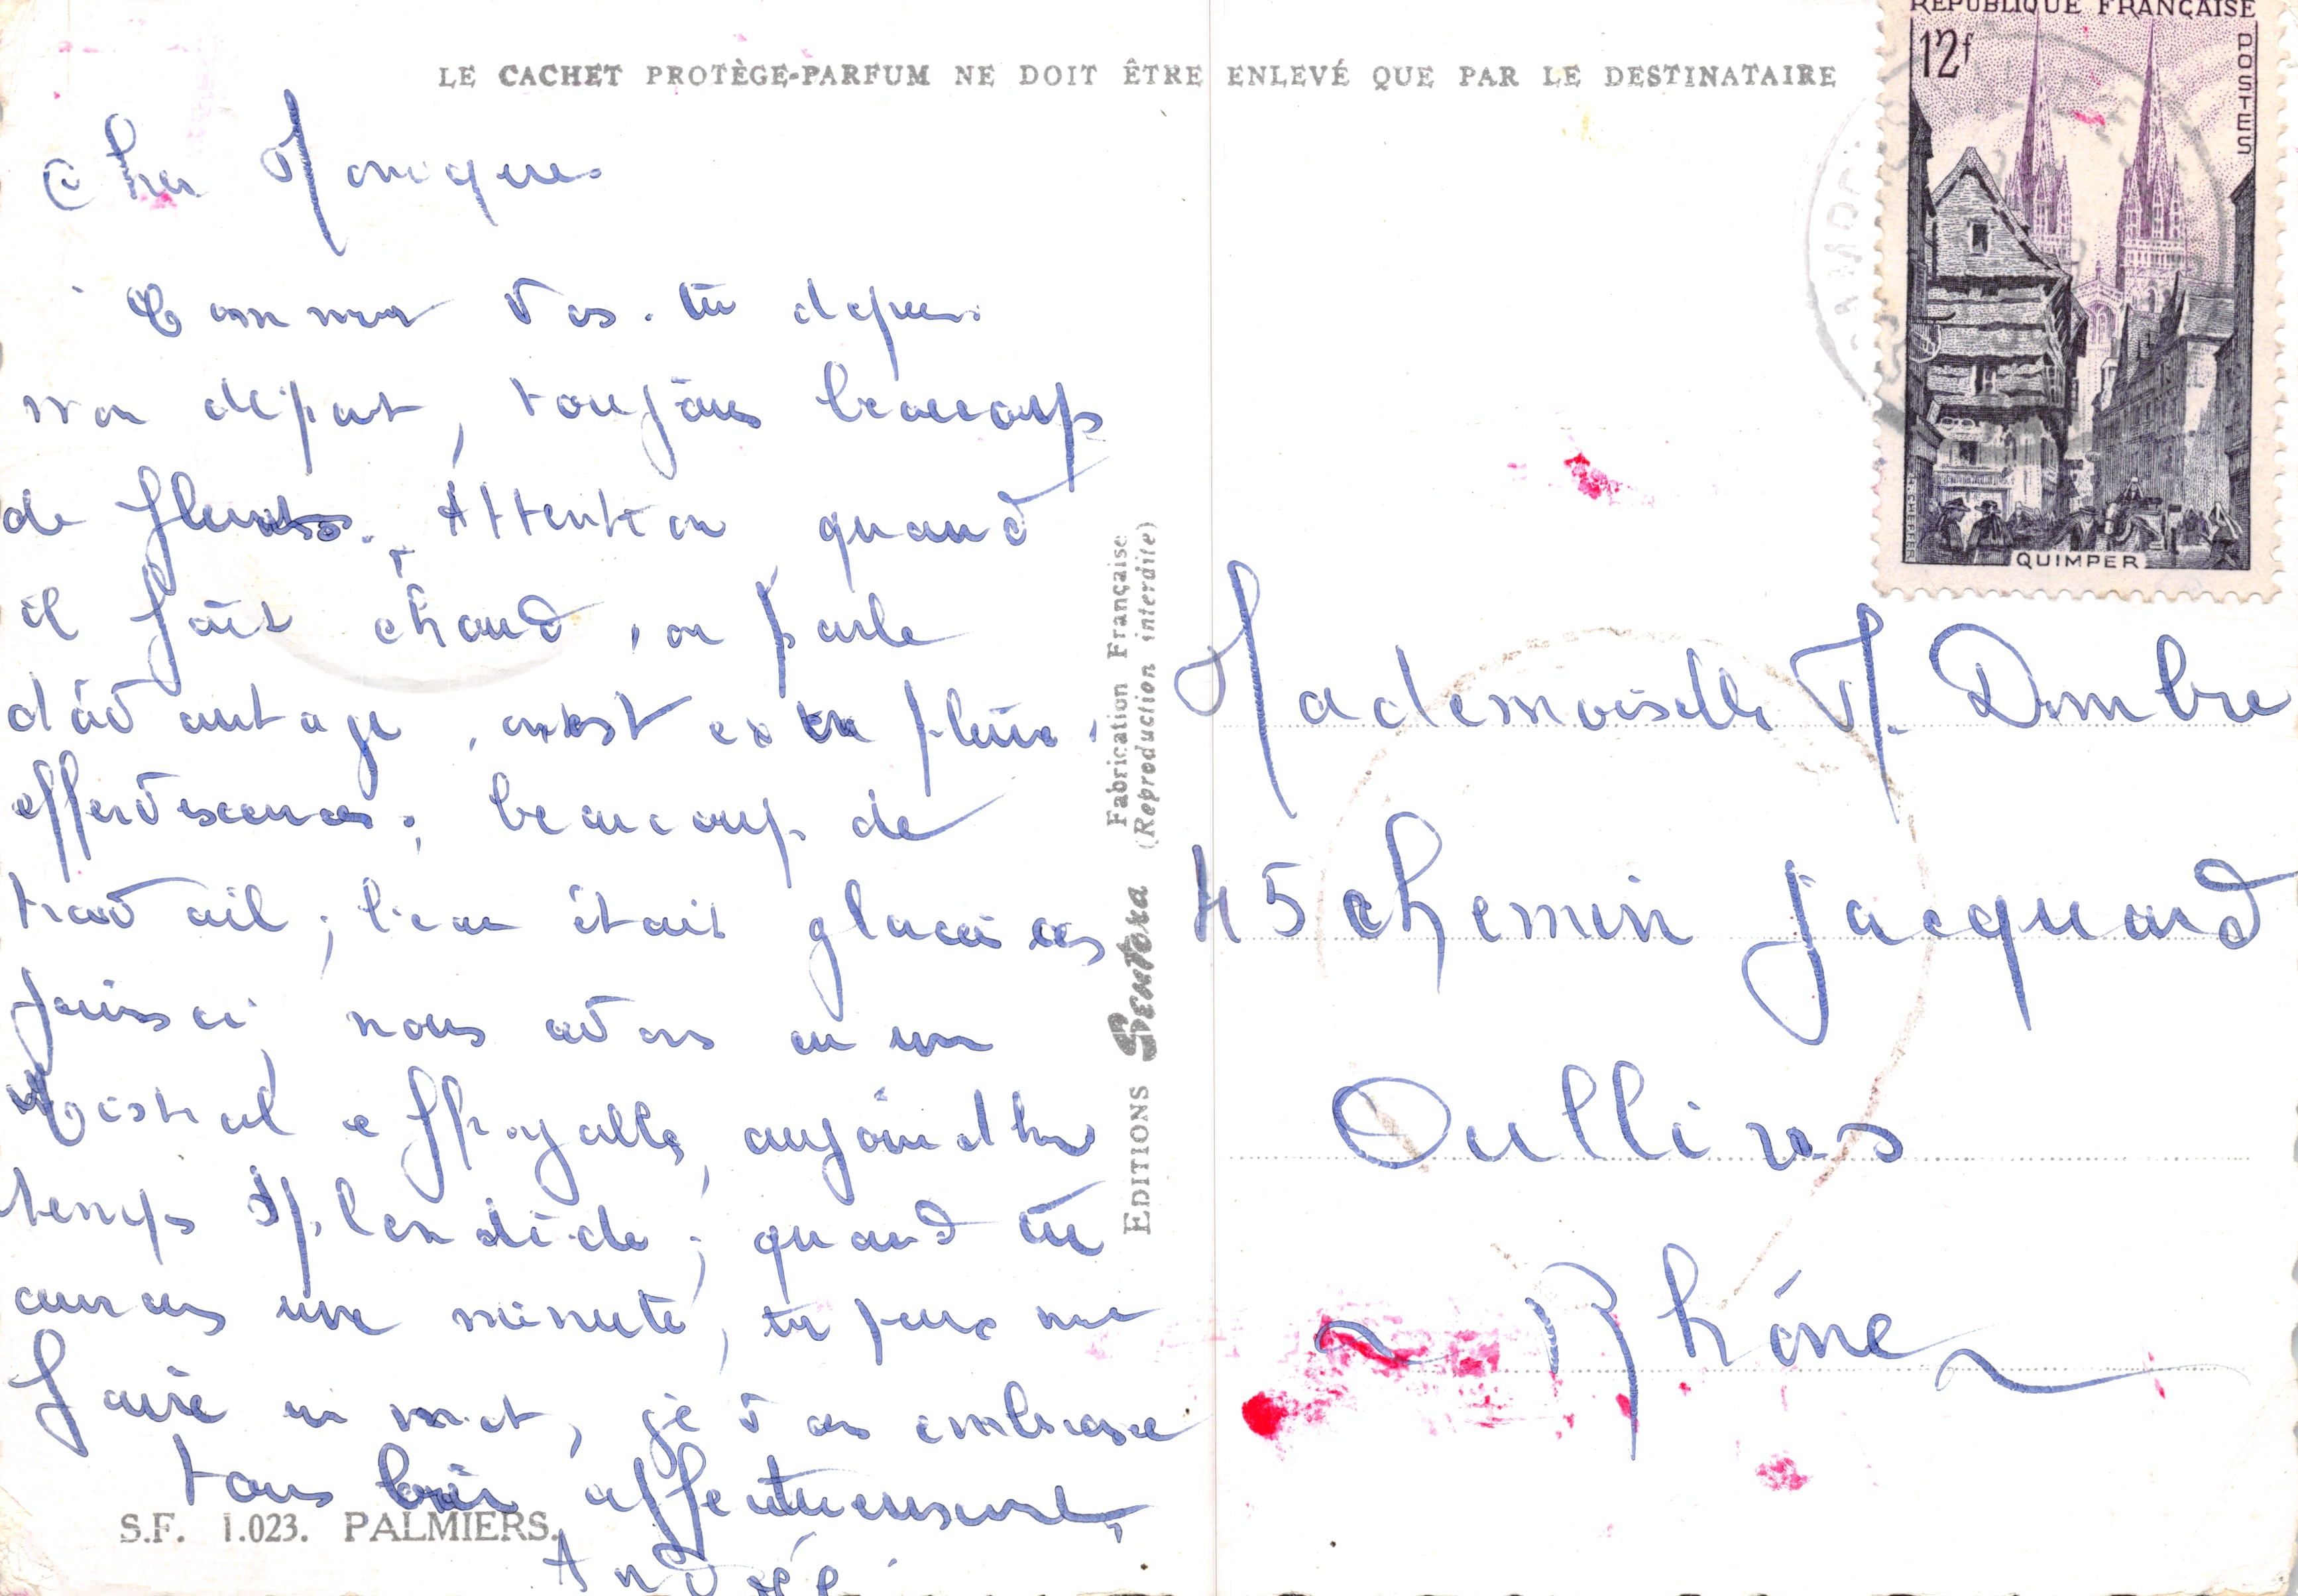 LE CACHET PROTÈGE-PARFUM NE DOIT ÊTRE ENLEVÉ QUE PAR LE DESTINATAIRE
Cher Monique
Comment vas-tu depuis
mon départ, toujours beaucoup
de Attention quand
il fait chaud, on parle
d'avantage, on est en pleine
effervescence, beaucoup de
travail; l'eau était glacée ces
jours ci, nous avons eu un
Mistral effroyable, aujourd'hui
temps splendide; quand tu
auras une minute, tu peux me
faire un mot, je vous embrasse
tous bien affectueusement,
Andrée
S.F. 1.023. PALMIERS.
EDITIONS Sentora Fabrication Française
(Reproduction interdite)
RÉPUBLIQUE FRANÇAISE
12f
POSTES
QUIMPER
Mademoiselle M. Dombre
45 chemin Jacquard
Oullins
Rhône